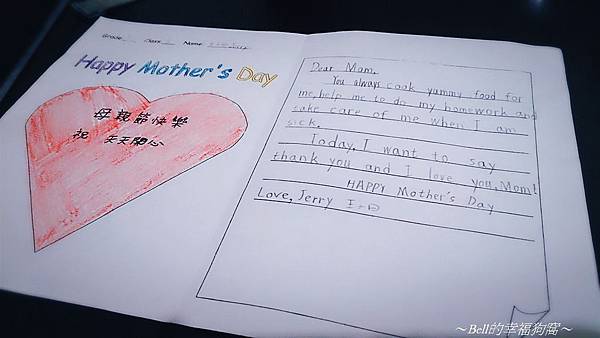 Grade Class Name
Happy Mother's Day
母親節快樂
祝 天天開心
Dear Mom,
You always cook yummy food for
me, help me to do my homework and
take care of me when I am
sick.
Today, I want to say
thank you and I love you, Mom!
HAPPY Mother's Day
Love, Jerry
～Bell的幸福狗窩～